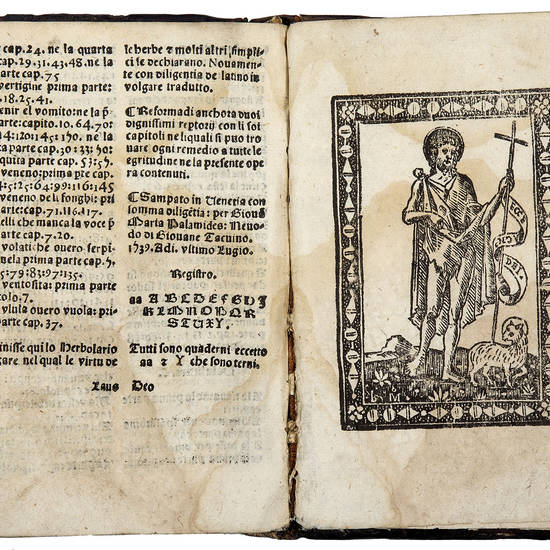 cap.24. ne la quarta
cap.29.31.43.48. ne la
parte cap.75
vertigine prima parte:
.18.25.41.
venir el vomito: ne la p̄
arte: capito.10.64.70:
:104:132:145: ne la
ta parte cap.30:33:50:
quita parte cap.53:55.
veneno: prima pte cap.
4:5:12:64:99:116:145
veneno de li fonghi: pri
arte: cap.71.116.117.
elli che manca la voce p̄
rte cap.7.20.
volati: che ouero serpi
ne la prima parte cap.5.
55:79:83:97:135.
ventosita: prima parte
tolo.7.
viula ouero vuola: pri-
arte cap.37.
finisse qui lo Herbolario
gare nel qual le virtu de
le herbe & molti altri, simpli
ci se dechiarano. Nouamen
te con diligentia de latino in
volgare tradutto.
☾Reformadi anchora duoi
dignissimi reptorij con li soi
capitoli ne li quali si puo tro
uare ogni remedio a tutte le
egritudine ne la presente ope
ra contenuti.
☾Sampato in Uenetia con
somma diligētia: per Giouā
Maria Palamides: Neuo-
do di Giouane Tacuino.
1539. Adi. vltimo Lugio.
Registro.
aa A B C D E F G H I
K L M N O P Q R
S T U X Y.
Tutti sono quaderni eccetto
aa & Y che sono terni.
Laus Deo
ECCE
DEI
L M